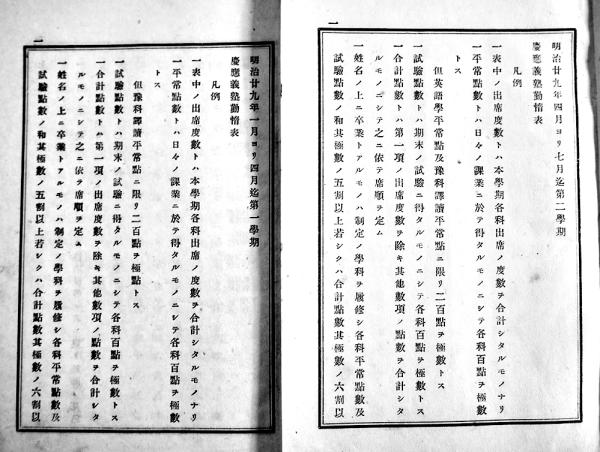 一
明治廿九年四月ヨリ七月迄第二學期
慶應義塾勤惰表
凡例
一表中ノ出席度數トハ本學期各科出席ノ度數ヲ合計シタルモノナリ
一平常點數トハ日々ノ課業ニ於テ得タルモノニシテ各科百點ヲ極數
トス
但英語學平常點及豫科譯讀平常點ニ限リ二百點ヲ極數トス
一試驗點數トハ期末ノ試驗ニ得タルモノニシテ各科百點ヲ極數トス
一合計點數トハ第一項ノ出席度數ヲ除キ其他數項ノ點數ヲ合計シタ
ルモノニシテ之ニ依テ席順ヲ定ム
一姓名ノ上ニ卒業トアルモノハ制定ノ學科ヲ履修シ各科平常點數及
試驗點數ノ和其極數ノ五割以上若シクハ合計點數其極數ノ六割以
一
明治廿九年一月ヨリ四月迄第一學期
慶應義塾勤惰表
凡例
一表中ノ出席度數トハ本學期各科出席ノ度數ヲ合計シタルモノナリ
一平常點數トハ日々ノ課業ニ於テ得タルモノニシテ各科百點ヲ極數
トス
但豫科譯讀平常點ニ限リ二百點ヲ極點トス
一試驗點數トハ期末ノ試驗ニ得タルモノニシテ各科百點ヲ極數トス
一合計點數トハ第一項ノ出席度數ヲ除キ其他數項ノ點數ヲ合計シタ
ルモノニシテ之ニ依テ席順ヲ定ム
一姓名ノ上ニ卒業トアルモノハ制定ノ學科ヲ履修シ各科平常點數及
試驗點數ノ和其極數ノ五割以上若シクハ合計點數其極數ノ六割以